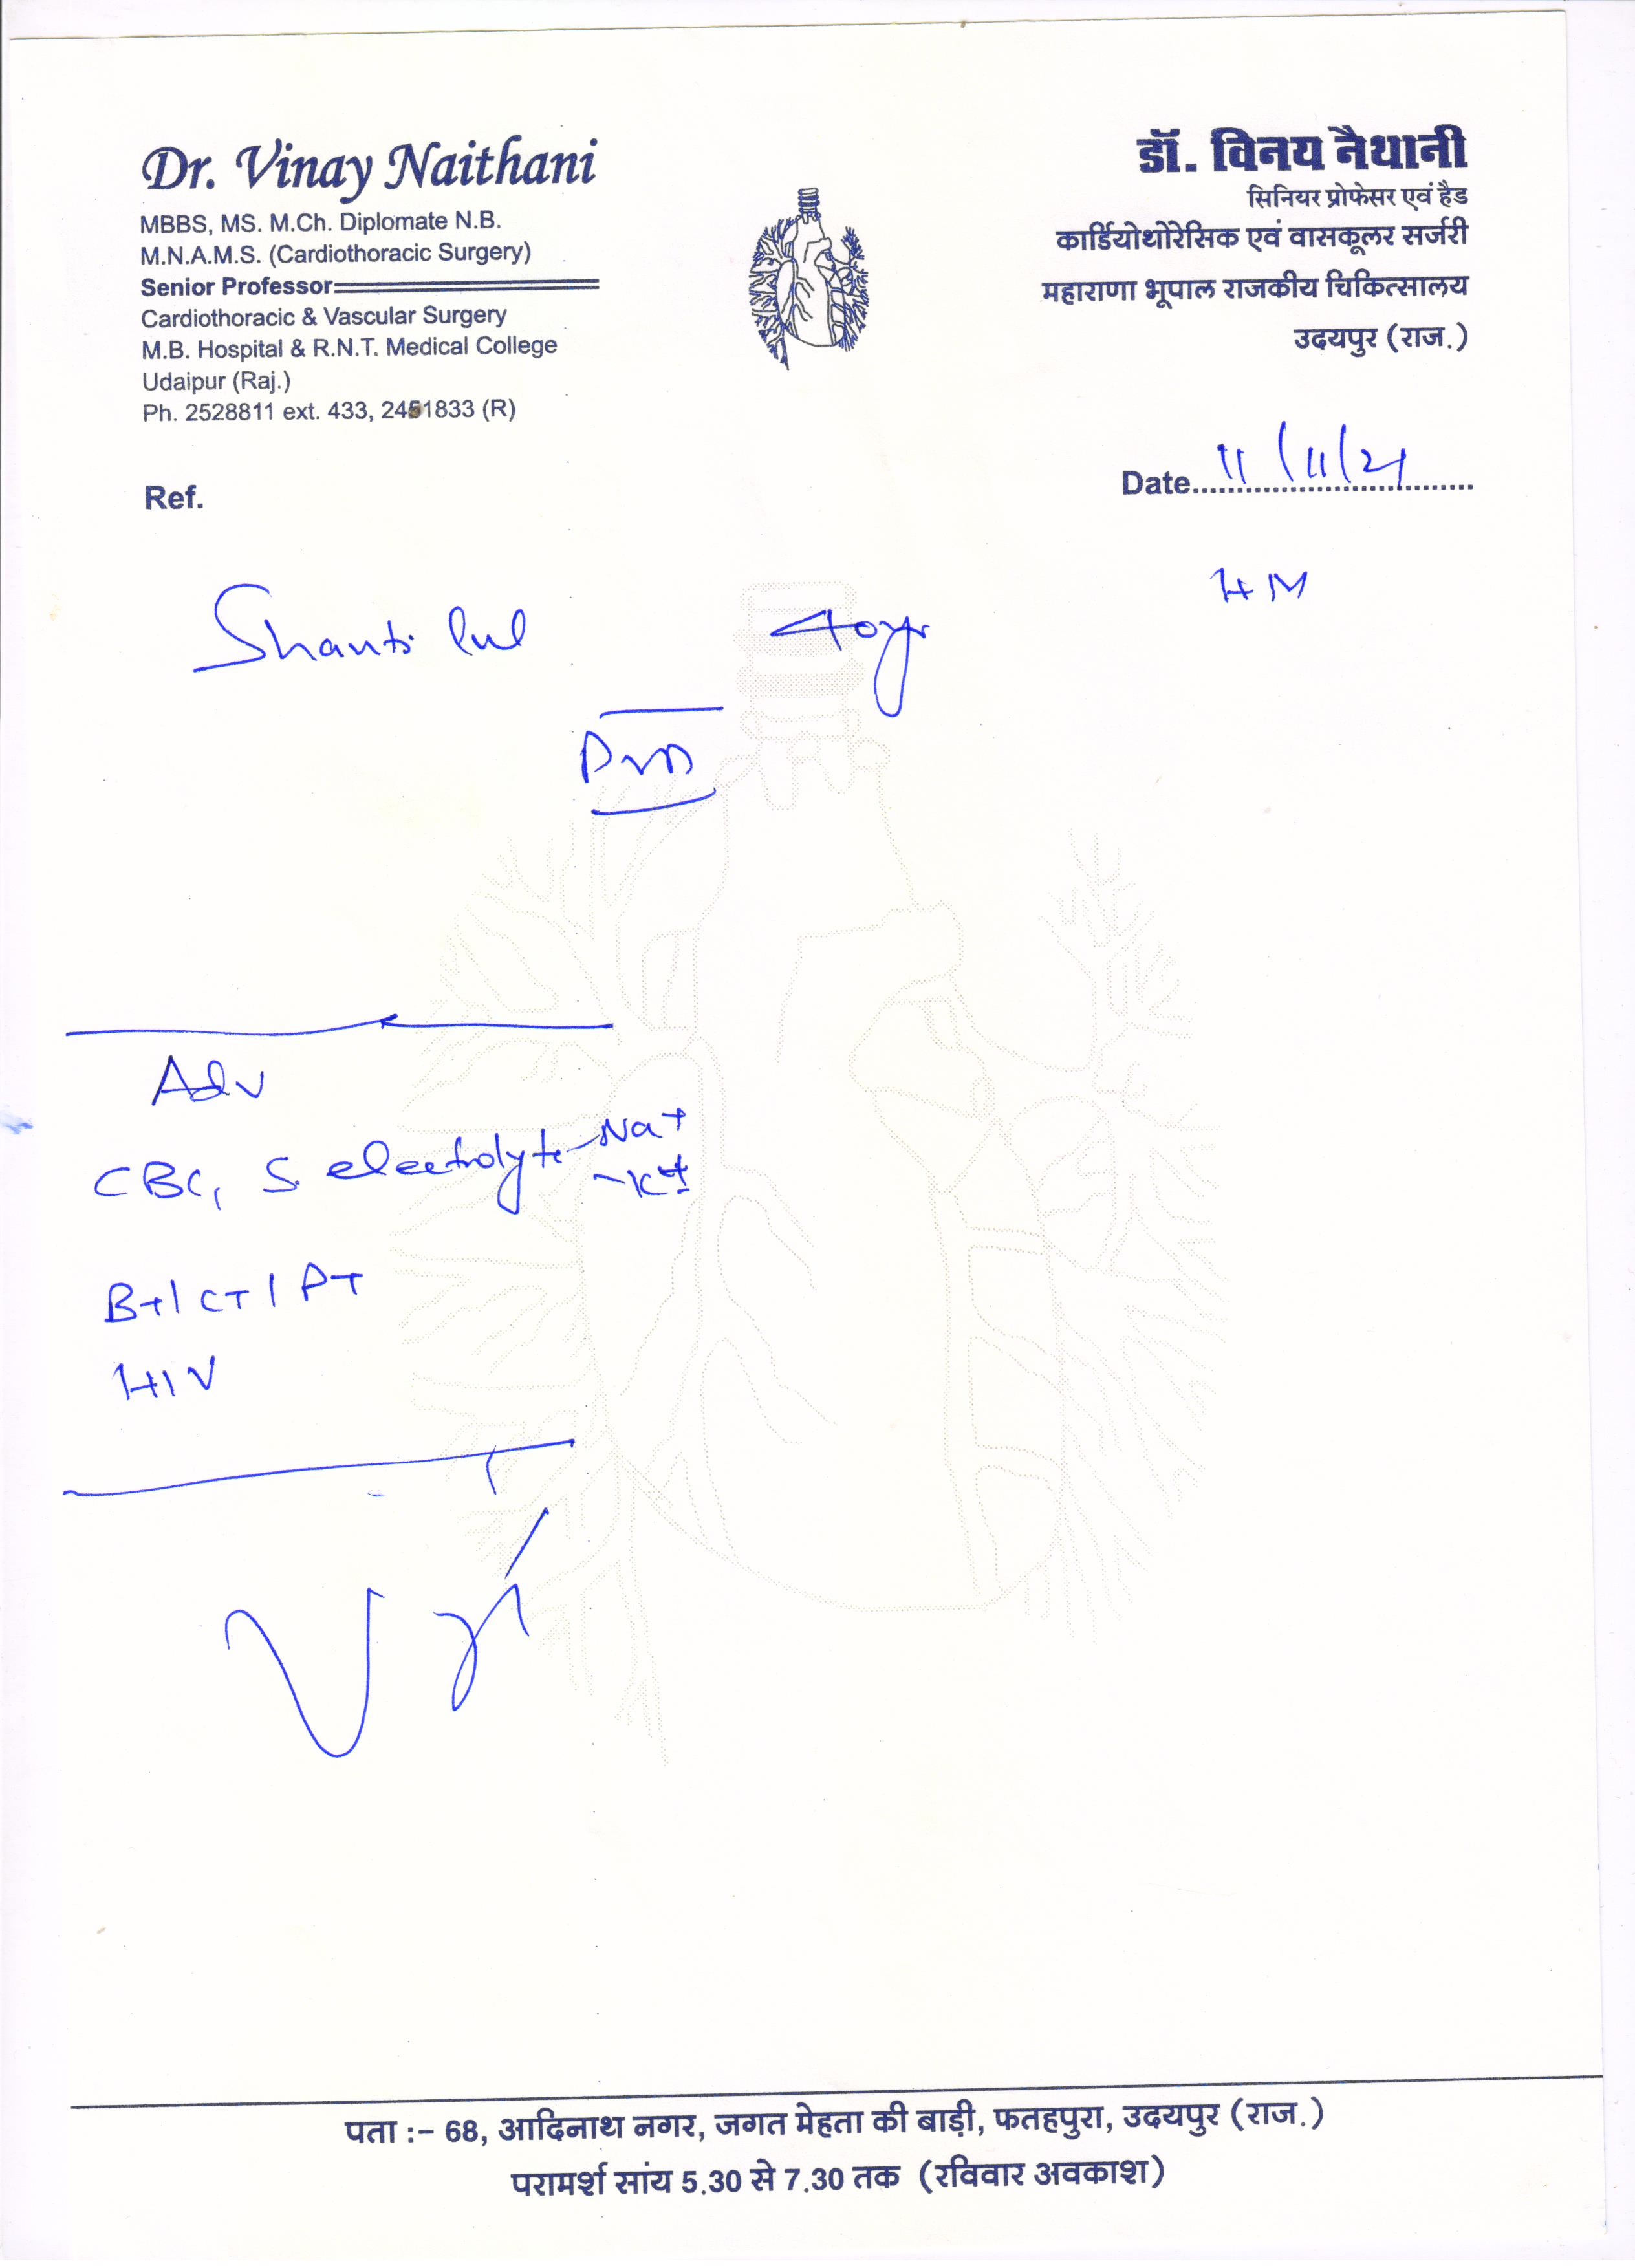 Dr. Vinay Naithani
MBBS, MS. M.Ch. Diplomate N.B.
M.N.A.M.S. (Cardiothoracic Surgery)
Senior Professor
Cardiothoracic & Vascular Surgery
M.B. Hospital & R.N.T. Medical College
Udaipur (Raj.)
Ph. 2528811 ext. 433, 2451833 (R)
डॉ. विनय नैथानी
सिनियर प्रोफेसर एवं हैड
कार्डियोथोरेसिक एवं वासकूलर सर्जरी
महाराणा भूपाल राजकीय चिकित्सालय
उदयपुर (राज.)
Ref.
Date 11/11/21
HM
Shanti lal 40yr
Adv
CBC, S. electrolyte - Na+
- K+
BT/CT/PT
HIV
पता :– 68, आदिनाथ नगर, जगत मेहता की बाड़ी, फतहपुरा, उदयपुर (राज.)
परामर्श सांय 5.30 से 7.30 तक (रविवार अवकाश)